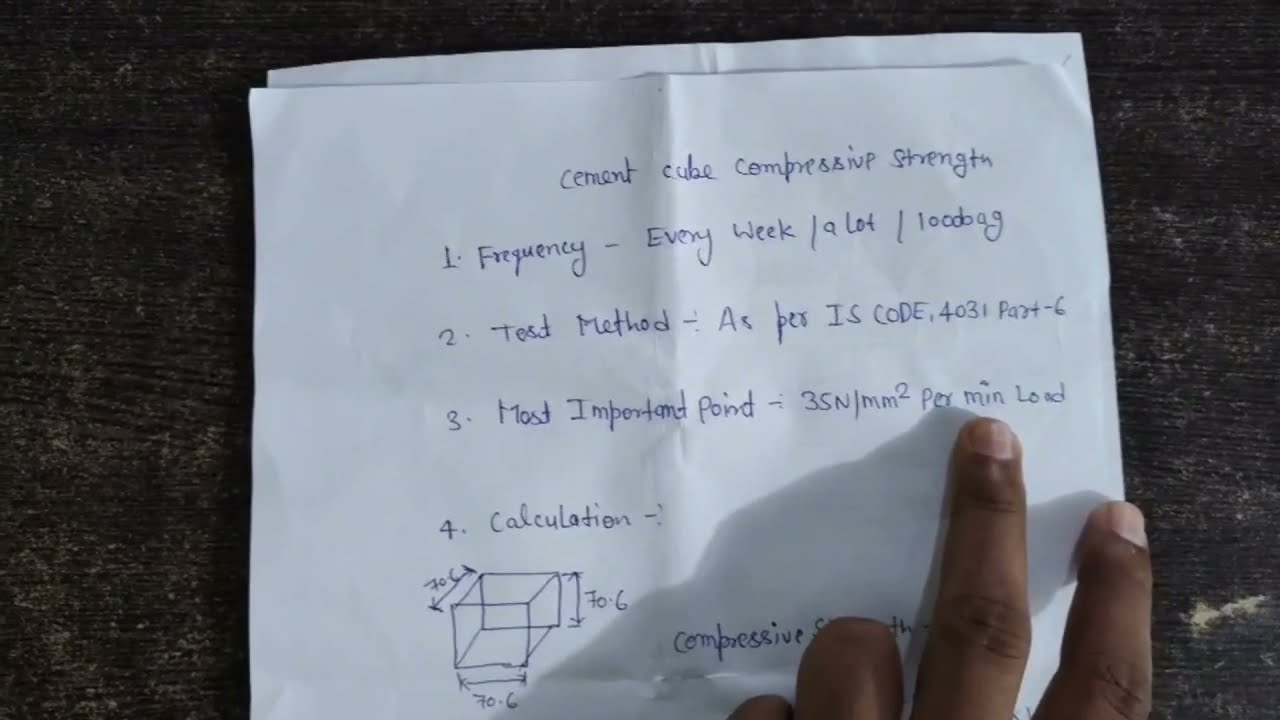 Cement cube compressive strength
1. Frequency - Every week / a lot / 1000bag
2. Test Method :- As per IS CODE, 4031 Part-6
3. Most Important point :- 35N/mm² per min Load
4. Calculation :-
70.6
70.6
compressive
70.6